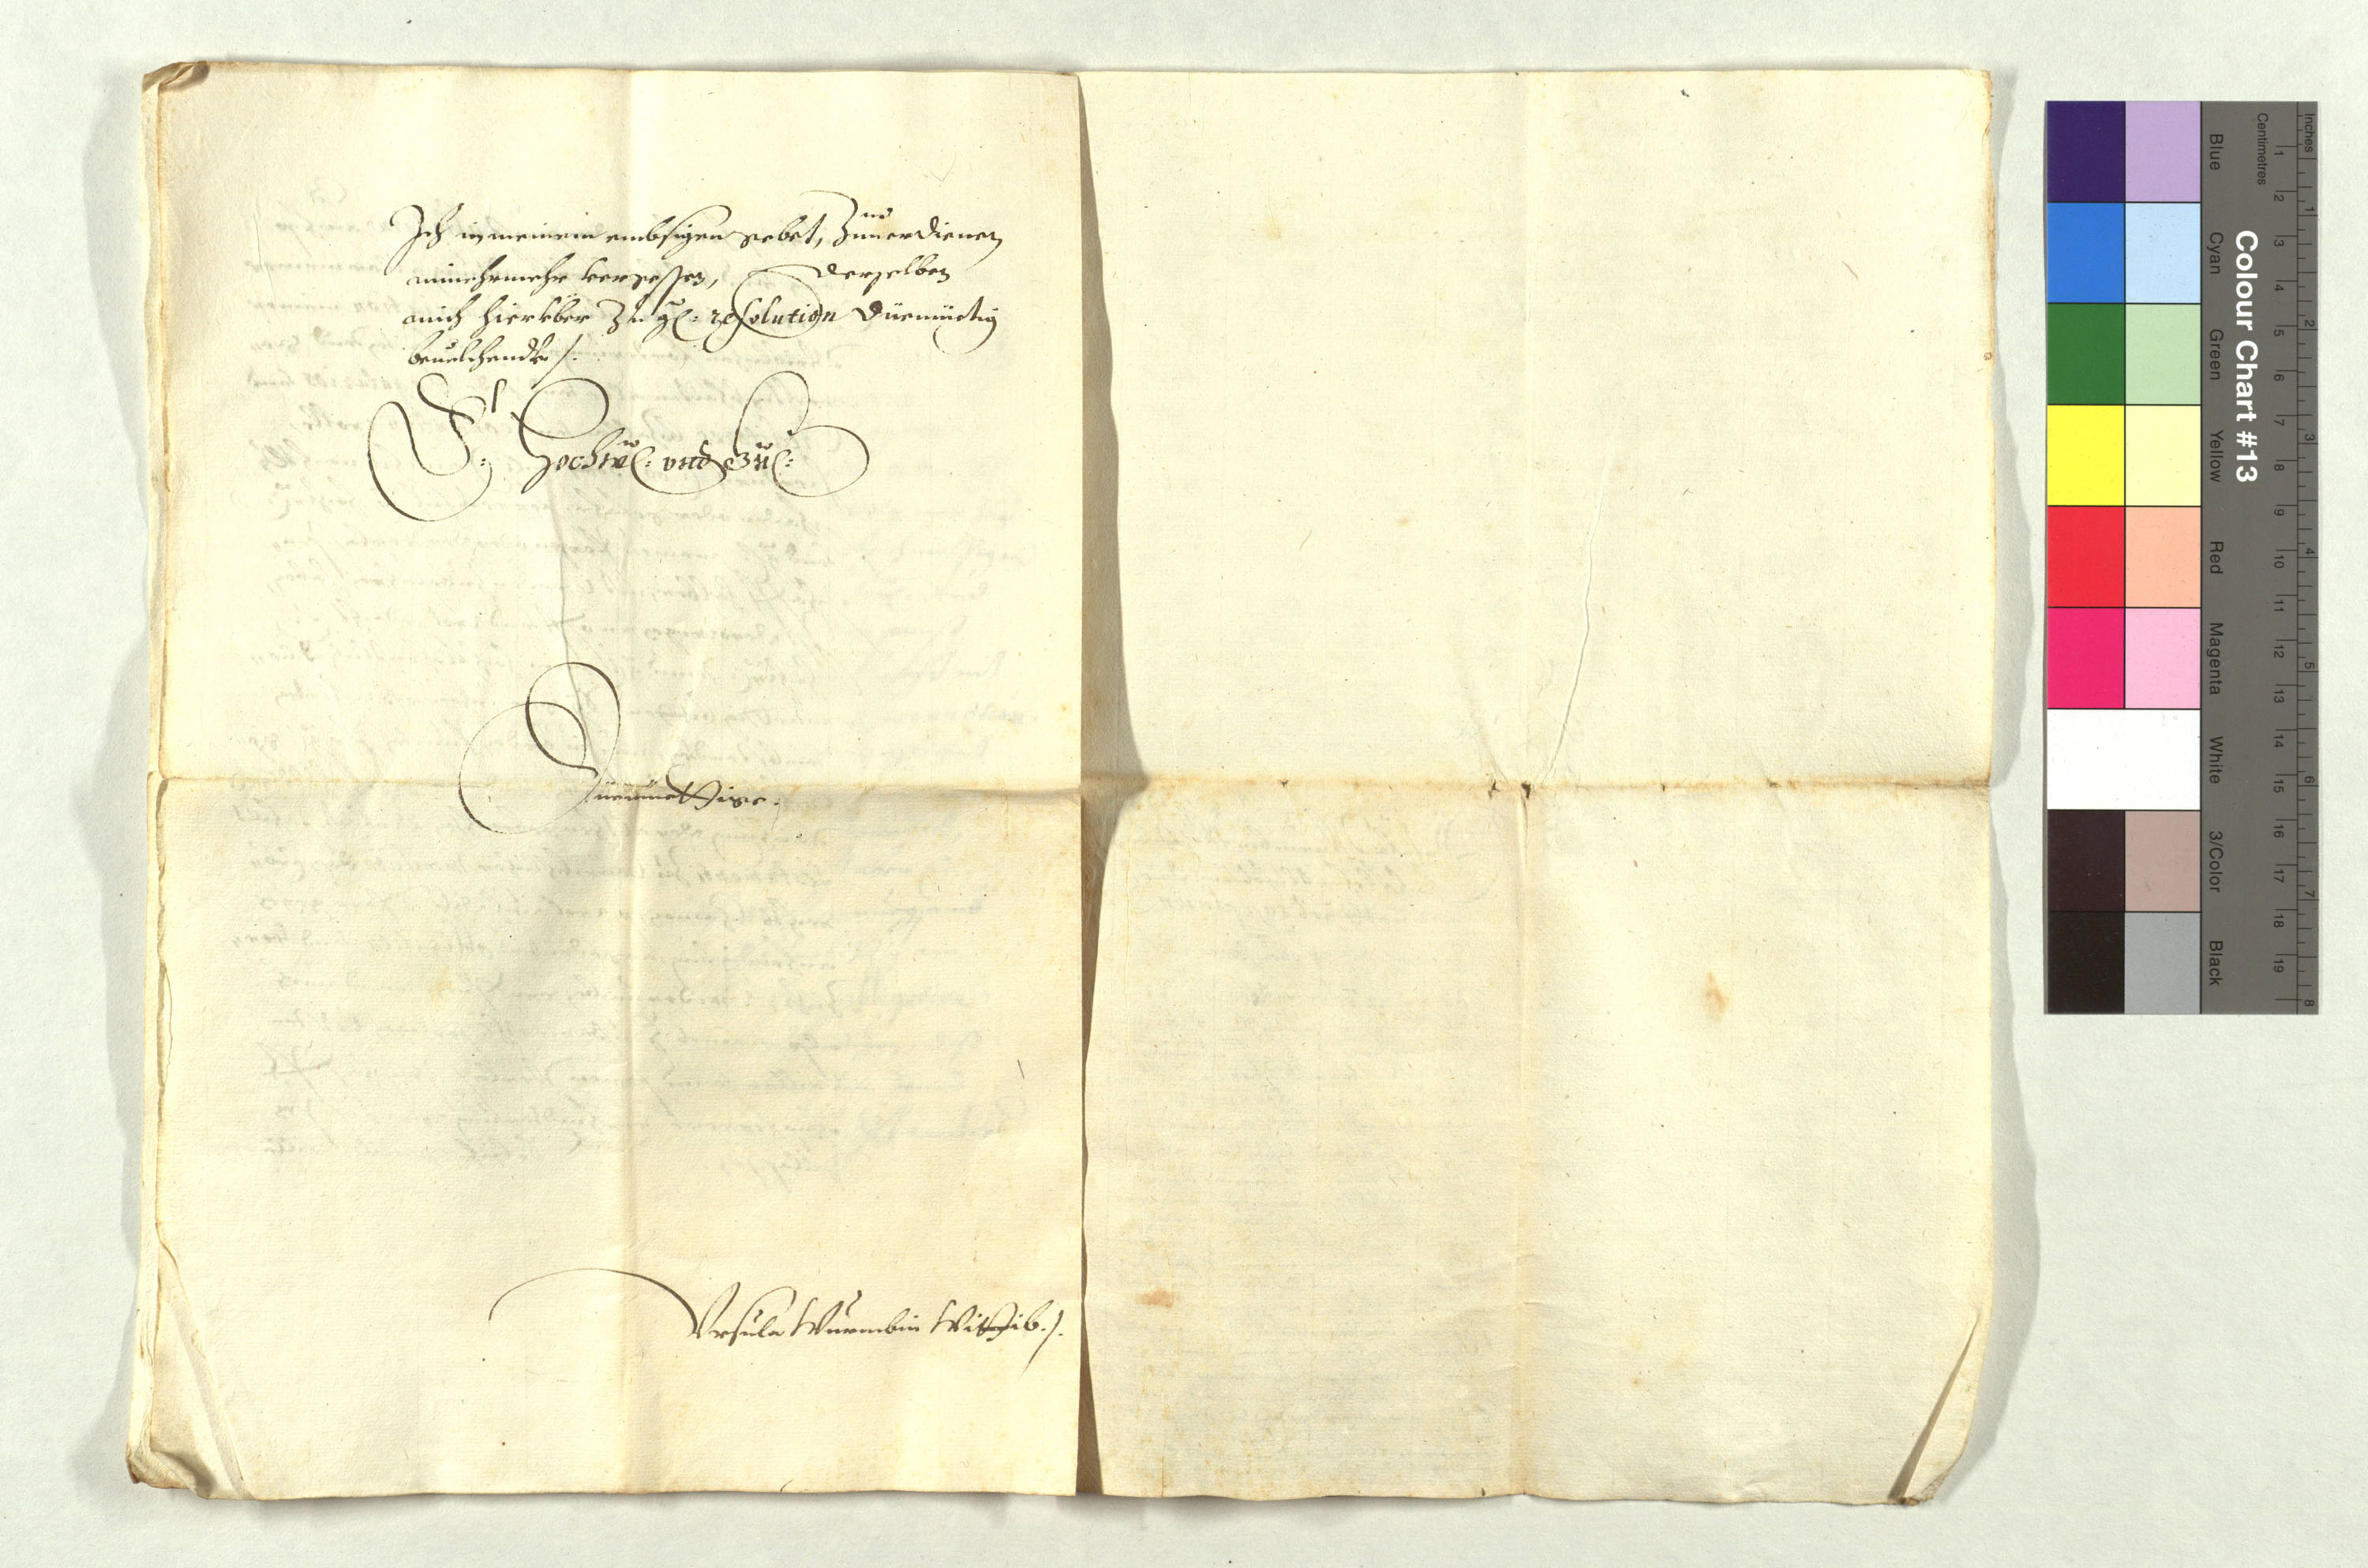 Ich in meinem embsigen gebet, Zuuerdienen
nimehrmehr vergessen, derselben
mich hierüber Zu gl: resolution diemüetig
beuelchendt /.
E: Hochwl: vnd Gnl:
Diemüettige.
Vrsula Wurmbin Wittib. /.
Colour Chart #13
Blue
Cyan
Green
Yellow
Red
Magenta
White
3/Color
Black
Centimetres
1 2 3 4 5 6 7 8 9 10 11 12 13 14 15 16 17 18 19
Inches
1 2 3 4 5 6 7 8